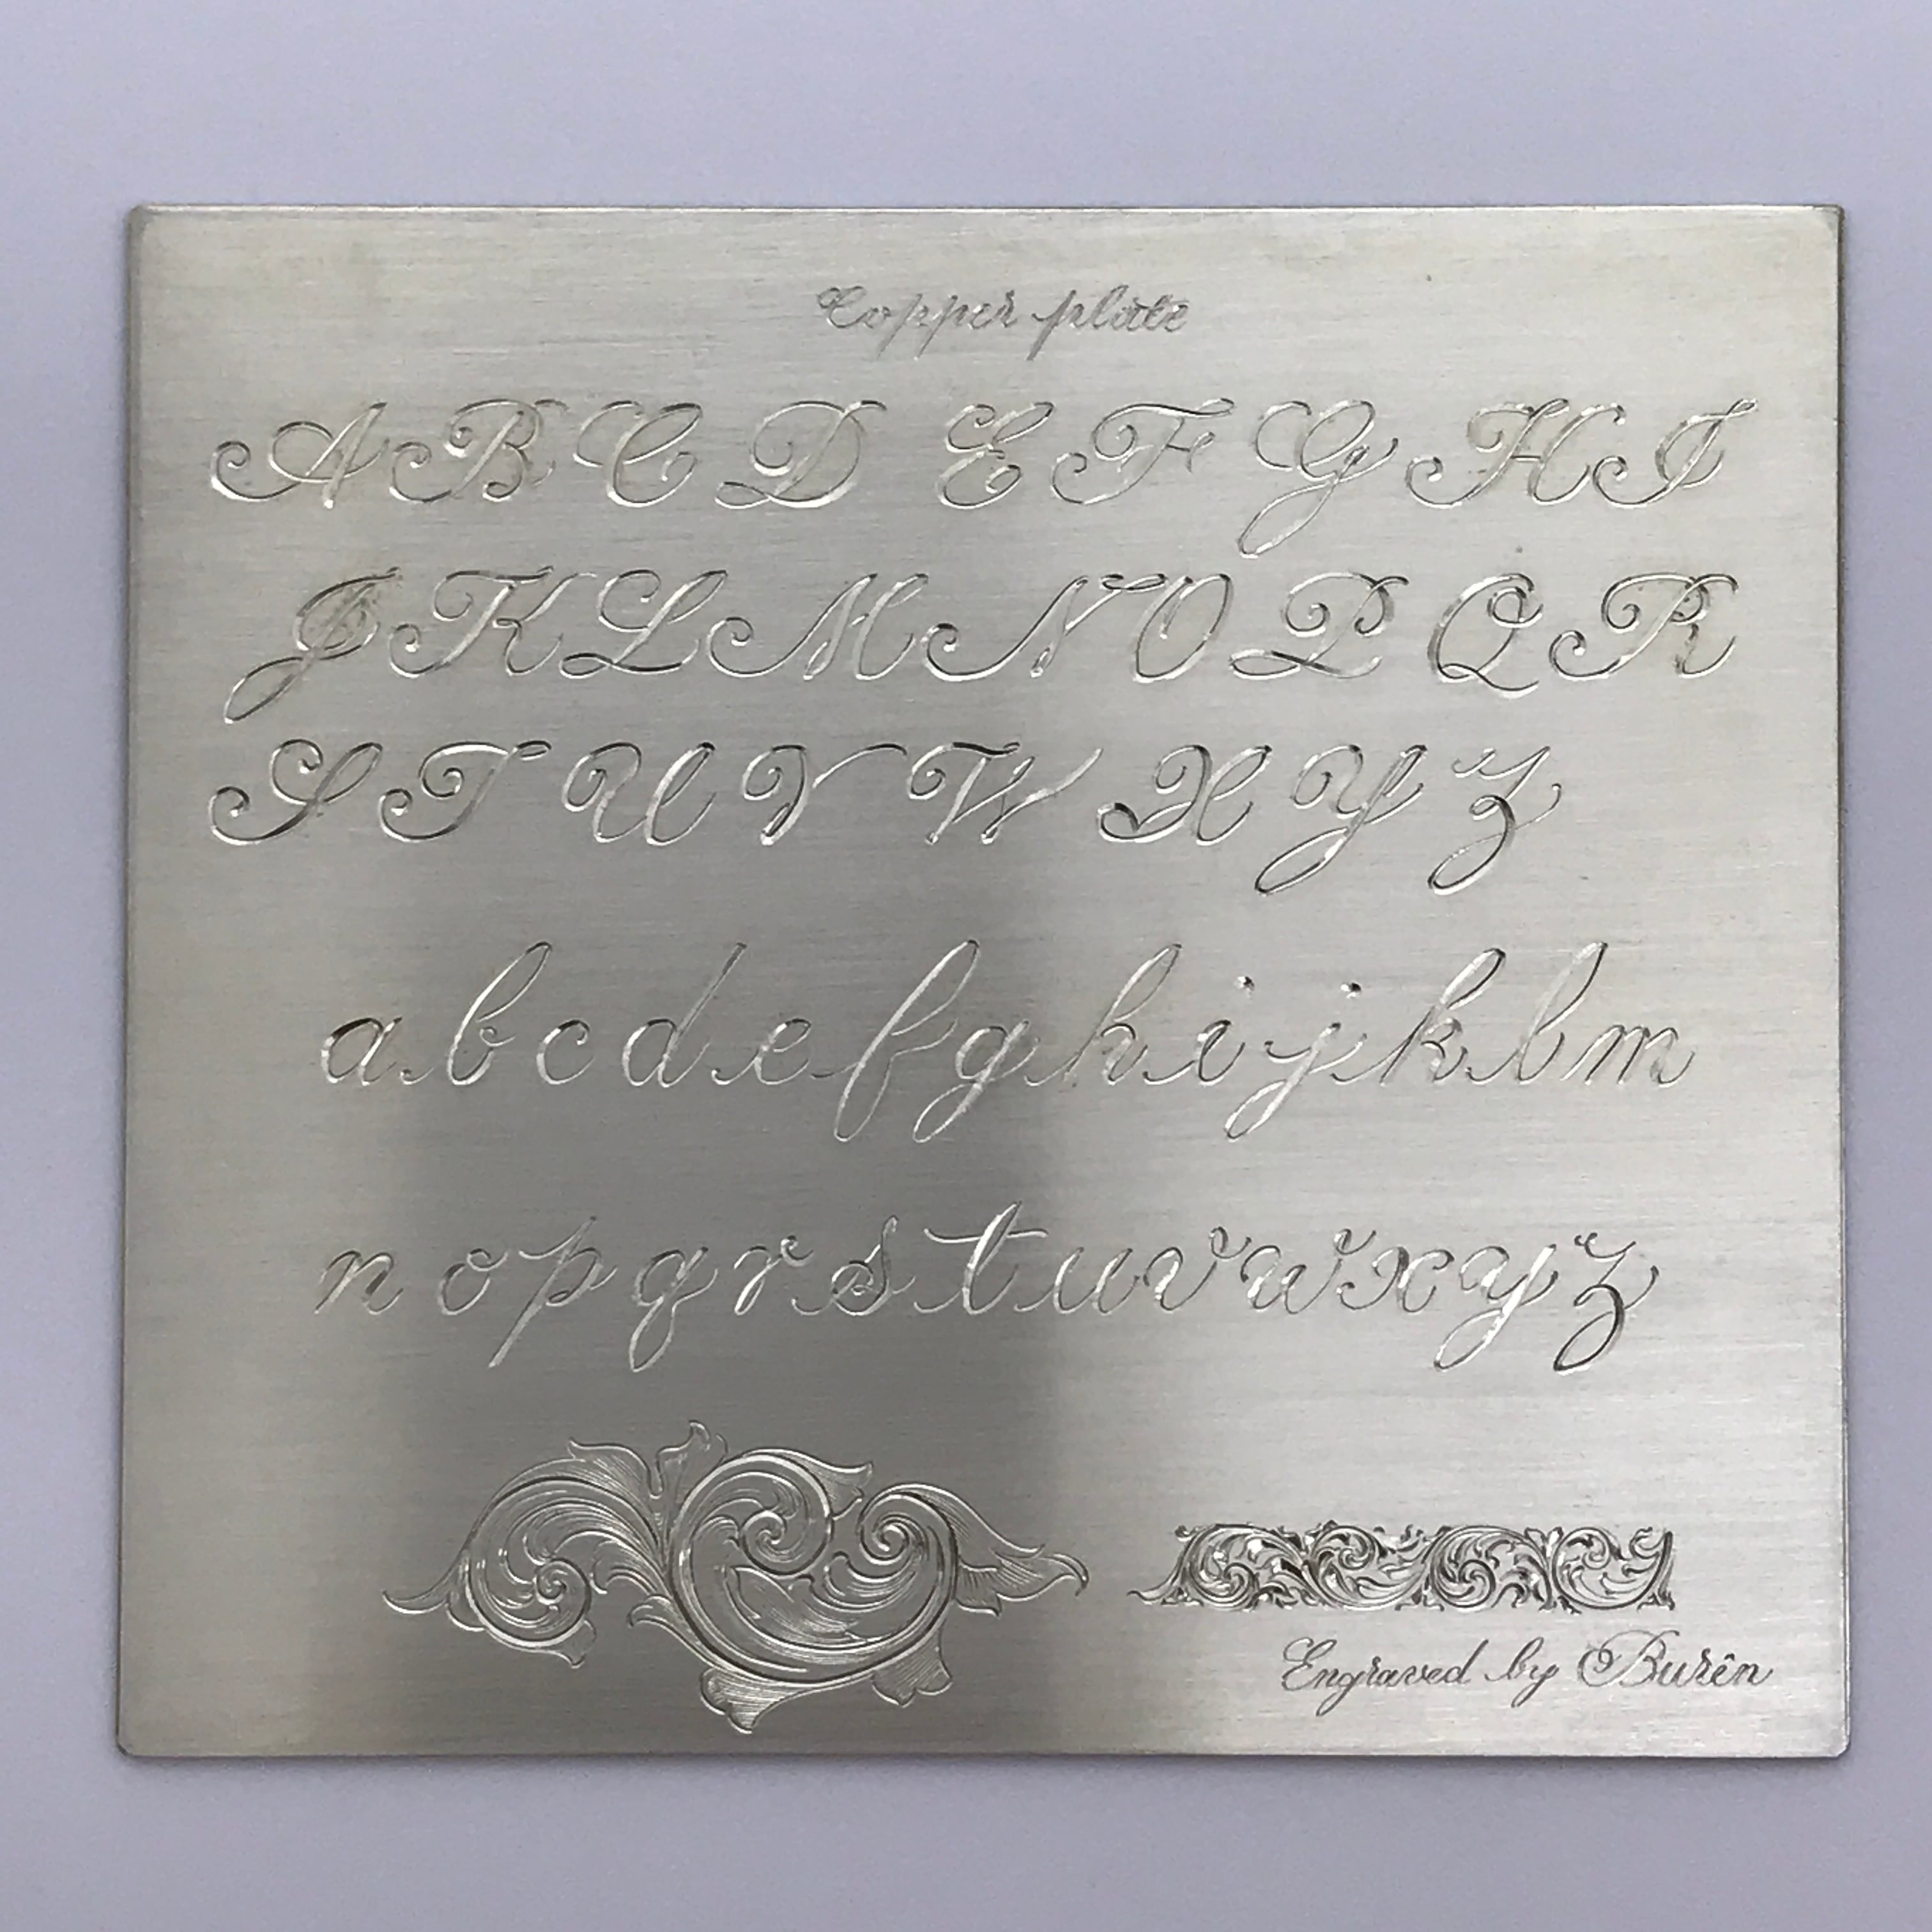 Copper plate
A B C D E F G H I
J K L M N O P Q R
S T U V W X Y Z
a b c d e f g h i j k l m
n o p q r s t u v w x y z
Engraved by Burên